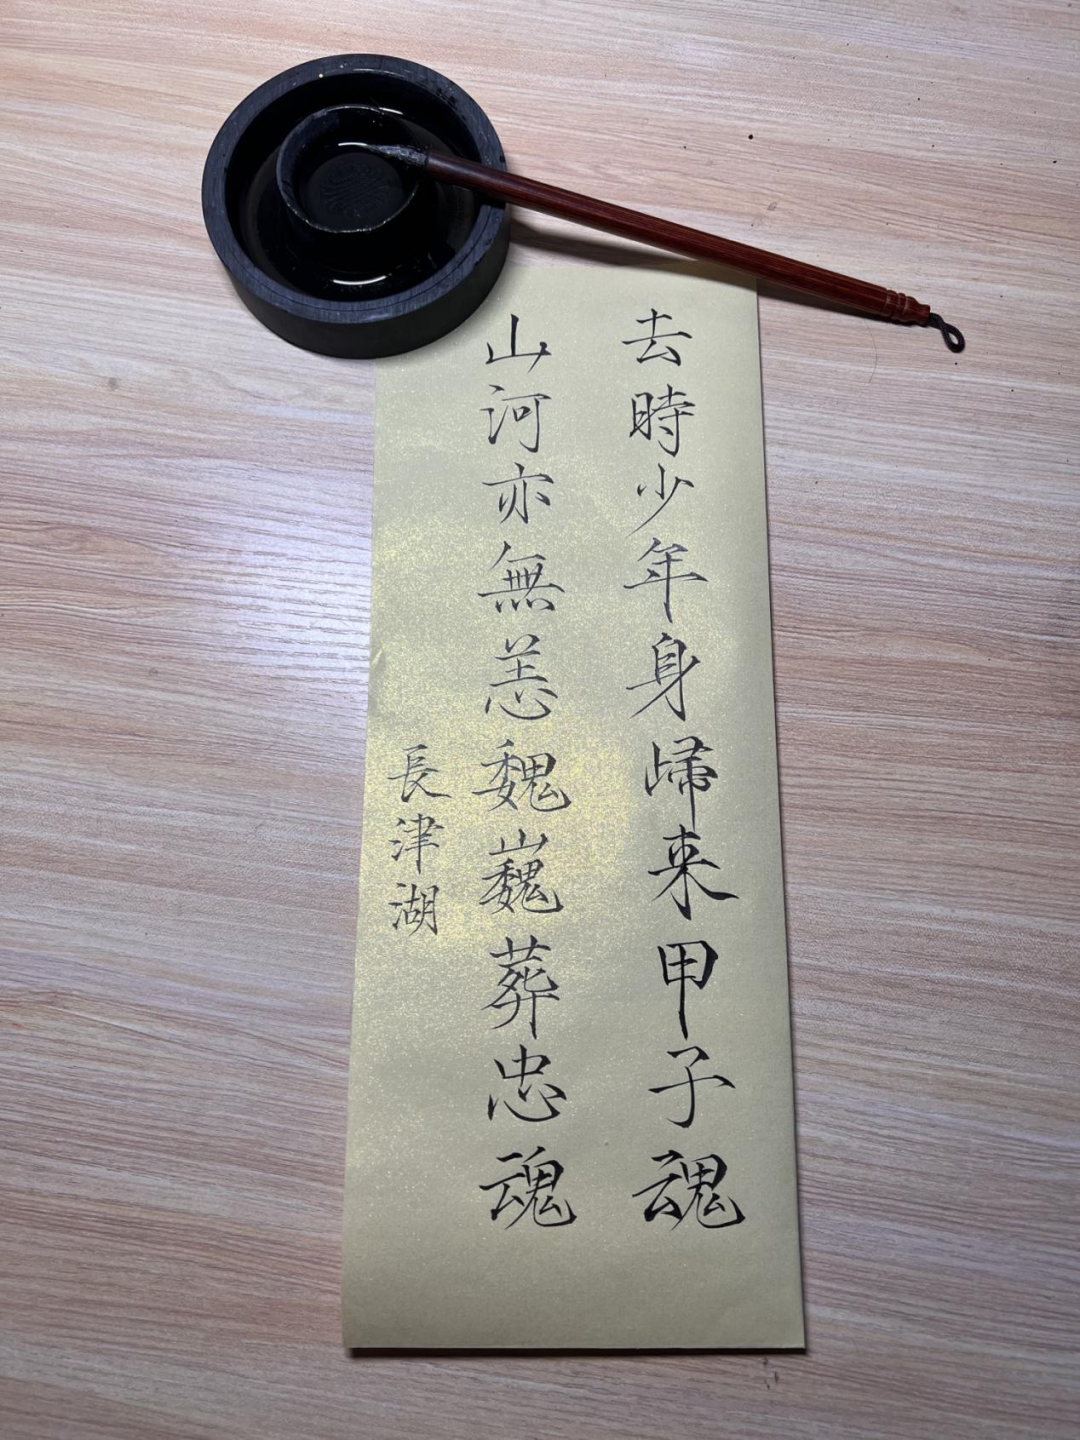 去時少年身歸来甲子魂
山河亦無恙魏巍葬忠魂
長津湖